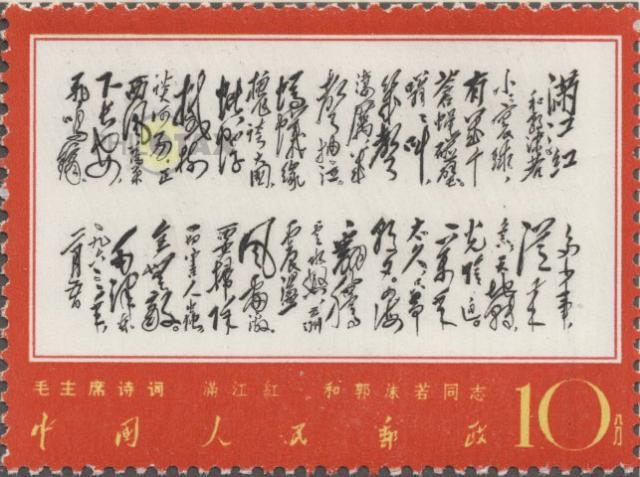 满江红
和郭沫若
小小寰球，
有几个
苍蝇碰壁。
嗡嗡叫，
几声
凄厉，几
声抽泣。
蚂蚁缘
槐夸大国，
蚍蜉
撼树
谈何易。正
西风落叶
下长安，
飞鸣镝。
多少事，
从来
急；天地转，
光阴迫。
一万年
太久，只争
朝夕。四海
翻腾
云水怒，五洲
震荡
风雷激。
要扫除
一切害人虫，
全无敌。
毛泽东
一九六三年
二月五日
毛主席诗词 满江红 和郭沫若同志
中国人民邮政 10分